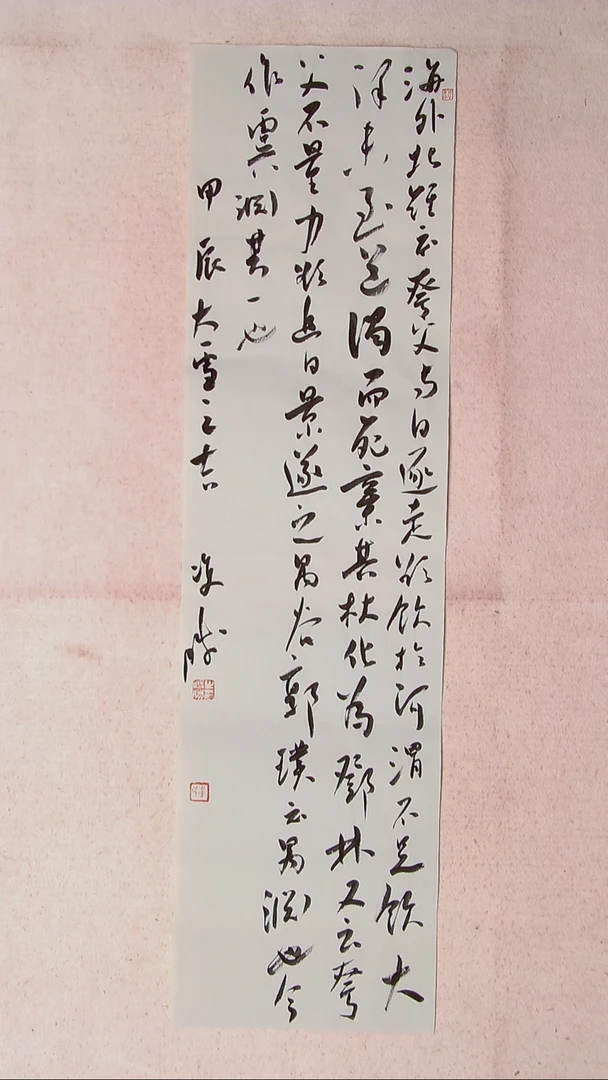 海外北經云夸父与日逐走欲飲於河渭不足飲大
澤未至道渴而死棄其杖化為鄧林又云夸
父不量力欲追日景遂之禺谷郭璞云禺淵也今
作虞淵其一也
甲辰大雪之吉